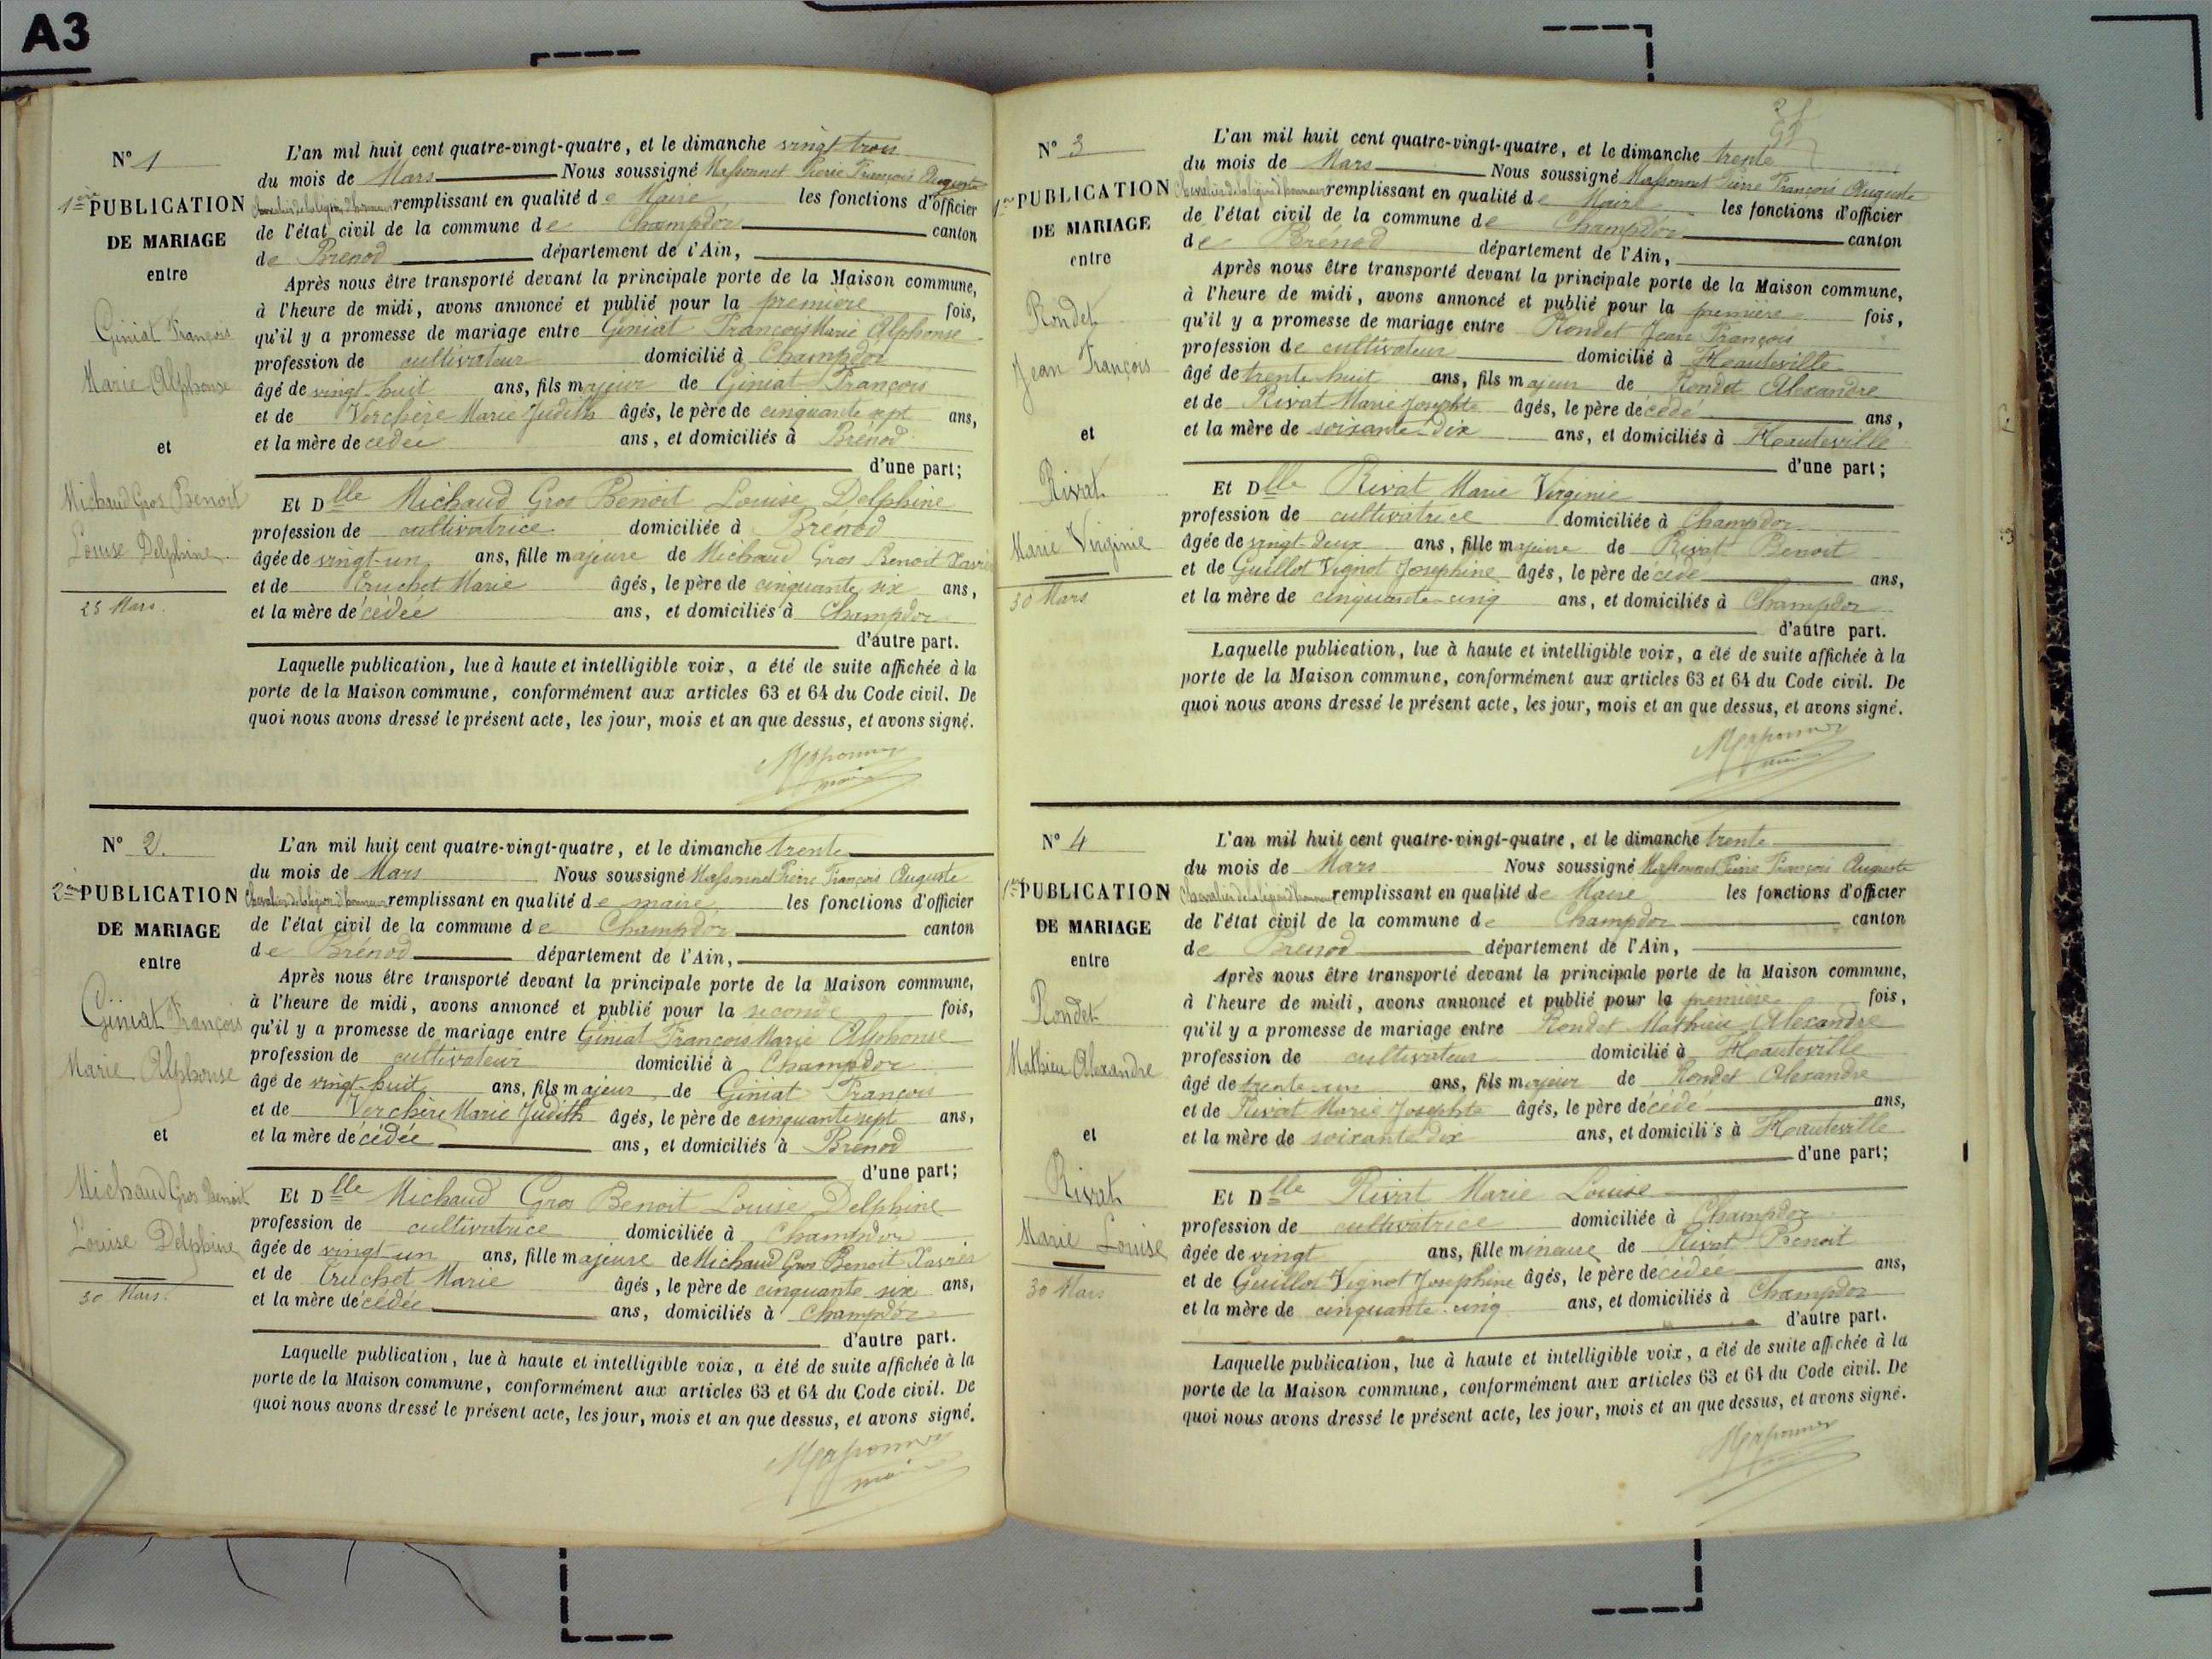 A3
N° 1
1ère PUBLICATION
DE MARIAGE
entre
Giniat François
Marie Alphonse
et
Michaud Gros Benoit
Louise Delphine
23 Mars.
L'an mil huit cent quatre-vingt-quatre, et le dimanche vingt trois
du mois de Mars Nous soussigné Massonnet Pierre François Auguste
Chevalier de la légion d'honneur remplissant en qualité de Maire les fonctions d'officier
de l'état civil de la commune de Champdor canton
de Brenod département de l'Ain,
Après nous être transporté devant la principale porte de la Maison commune,
à l'heure de midi, avons annoncé et publié pour la première fois,
qu'il y a promesse de mariage entre Giniat François Marie Alphonse
profession de cultivateur domicilié à Champdor
âgé de vingt-huit ans, fils majeur de Giniat François
et de Verchère Marie Judith âgés, le père de cinquante sept ans,
et la mère de cedée ans, et domiciliés à Brénod
d'une part;
Et Dlle Michaud Gros Benoit Louise Delphine
profession de cultivatrice domiciliée à Brénod
âgée de vingt-un ans, fille majeure de Michaud Gros Benoit Xavier
et de Truchet Marie âgés, le père de cinquante six ans,
et la mère décédée ans, et domiciliés à Champdor
d'autre part.
Laquelle publication, lue à haute et intelligible voix, a été de suite affichée à la
porte de la Maison commune, conformément aux articles 63 et 64 du Code civil. De
quoi nous avons dressé le présent acte, les jour, mois et an que dessus, et avons signé.
Massonnet
maire
N° 2.
2e PUBLICATION
DE MARIAGE
entre
Giniat François
Marie Alphonse
et
Michaud Gros Benoit
Louise Delphine
30 Mars.
L'an mil huit cent quatre-vingt-quatre, et le dimanche trente
du mois de Mars Nous soussigné Massonnet Pierre François Auguste
Chevalier de la légion d'honneur remplissant en qualité de maire les fonctions d'officier
de l'état civil de la commune de Champdor canton
de Brénod département de l'Ain,
Après nous être transporté devant la principale porte de la Maison commune,
à l'heure de midi, avons annoncé et publié pour la seconde fois,
qu'il y a promesse de mariage entre Giniat François Marie Alphonse
profession de cultivateur domicilié à Champdor
âgé de vingt-huit ans, fils majeur de Giniat François
et de Verchère Marie Judith âgés, le père de cinquante sept ans,
et la mère décédée ans, et domiciliés à Brénod
d'une part;
Et Dlle Michaud Gros Benoit Louise Delphine
profession de cultivatrice domiciliée à Champdor
âgée de vingt-un ans, fille majeure de Michaud Gros Benoit Xavier
et de Truchet Marie âgés, le père de cinquante six ans,
et la mère décédée ans, domiciliés à Champdor
d'autre part.
Laquelle publication, lue à haute et intelligible voix, a été de suite affichée à la
porte de la Maison commune, conformément aux articles 63 et 64 du Code civil. De
quoi nous avons dressé le présent acte, les jour, mois et an que dessus, et avons signé.
Massonnet
maire
N° 3
1ère PUBLICATION
DE MARIAGE
entre
Rondet
Jean François
et
Rivat
Marie Virginie
30 Mars
L'an mil huit cent quatre-vingt-quatre, et le dimanche trente
du mois de Mars Nous soussigné Massonnet Pierre François Auguste
Chevalier de la légion d'honneur remplissant en qualité de Maire les fonctions d'officier
de l'état civil de la commune de Champdor canton
de Brénod département de l'Ain,
Après nous être transporté devant la principale porte de la Maison commune,
à l'heure de midi, avons annoncé et publié pour la première fois,
qu'il y a promesse de mariage entre Rondet Jean François
profession de cultivateur domicilié à Hauteville
âgé de trente-huit ans, fils majeur de Rondet Alexandre
et de Rivat Marie Josephte âgés, le père décédé ans,
et la mère de soixante-dix ans, et domiciliés à Hauteville
d'une part;
Et Dlle Rivat Marie Virginie
profession de cultivatrice domiciliée à Champdor
âgée de vingt-deux ans, fille majeure de Rivat Benoit
et de Guillot Vignot Josephine âgés, le père décédé ans,
et la mère de cinquante-cinq ans, et domiciliés à Champdor
d'autre part.
Laquelle publication, lue à haute et intelligible voix, a été de suite affichée à la
porte de la Maison commune, conformément aux articles 63 et 64 du Code civil. De
quoi nous avons dressé le présent acte, les jour, mois et an que dessus, et avons signé.
Massonnet
maire
N° 4
1ère PUBLICATION
DE MARIAGE
entre
Rondet
Mathieu Alexandre
et
Rivat
Marie Louise
30 Mars
L'an mil huit cent quatre-vingt-quatre, et le dimanche trente
du mois de Mars Nous soussigné Massonnet Pierre François Auguste
Chevalier de la légion d'honneur remplissant en qualité de Maire les fonctions d'officier
de l'état civil de la commune de Champdor canton
de Brenod département de l'Ain,
Après nous être transporté devant la principale porte de la Maison commune,
à l'heure de midi, avons annoncé et publié pour la première fois,
qu'il y a promesse de mariage entre Rondet Mathieu Alexandre
profession de cultivateur domicilié à Hauteville
âgé de trente-un ans, fils majeur de Rondet Alexandre
et de Rivat Marie Josephte âgés, le père décédé ans,
et la mère de soixante dix ans, et domicili s à Hauteville
d'une part;
Et Dlle Rivat Marie Louise
profession de cultivatrice domiciliée à Champdor
âgée de vingt ans, fille mineure de Rivat Benoit
et de Guillot Vignot Josephine âgés, le père decédée ans,
et la mère de cinquante-cinq ans, et domiciliés à Champdor
d'autre part.
Laquelle publication, lue à haute et intelligible voix, a été de suite affichée à la
porte de la Maison commune, conformément aux articles 63 et 64 du Code civil. De
quoi nous avons dressé le présent acte, les jour, mois et an que dessus, et avons signé.
Massonnet